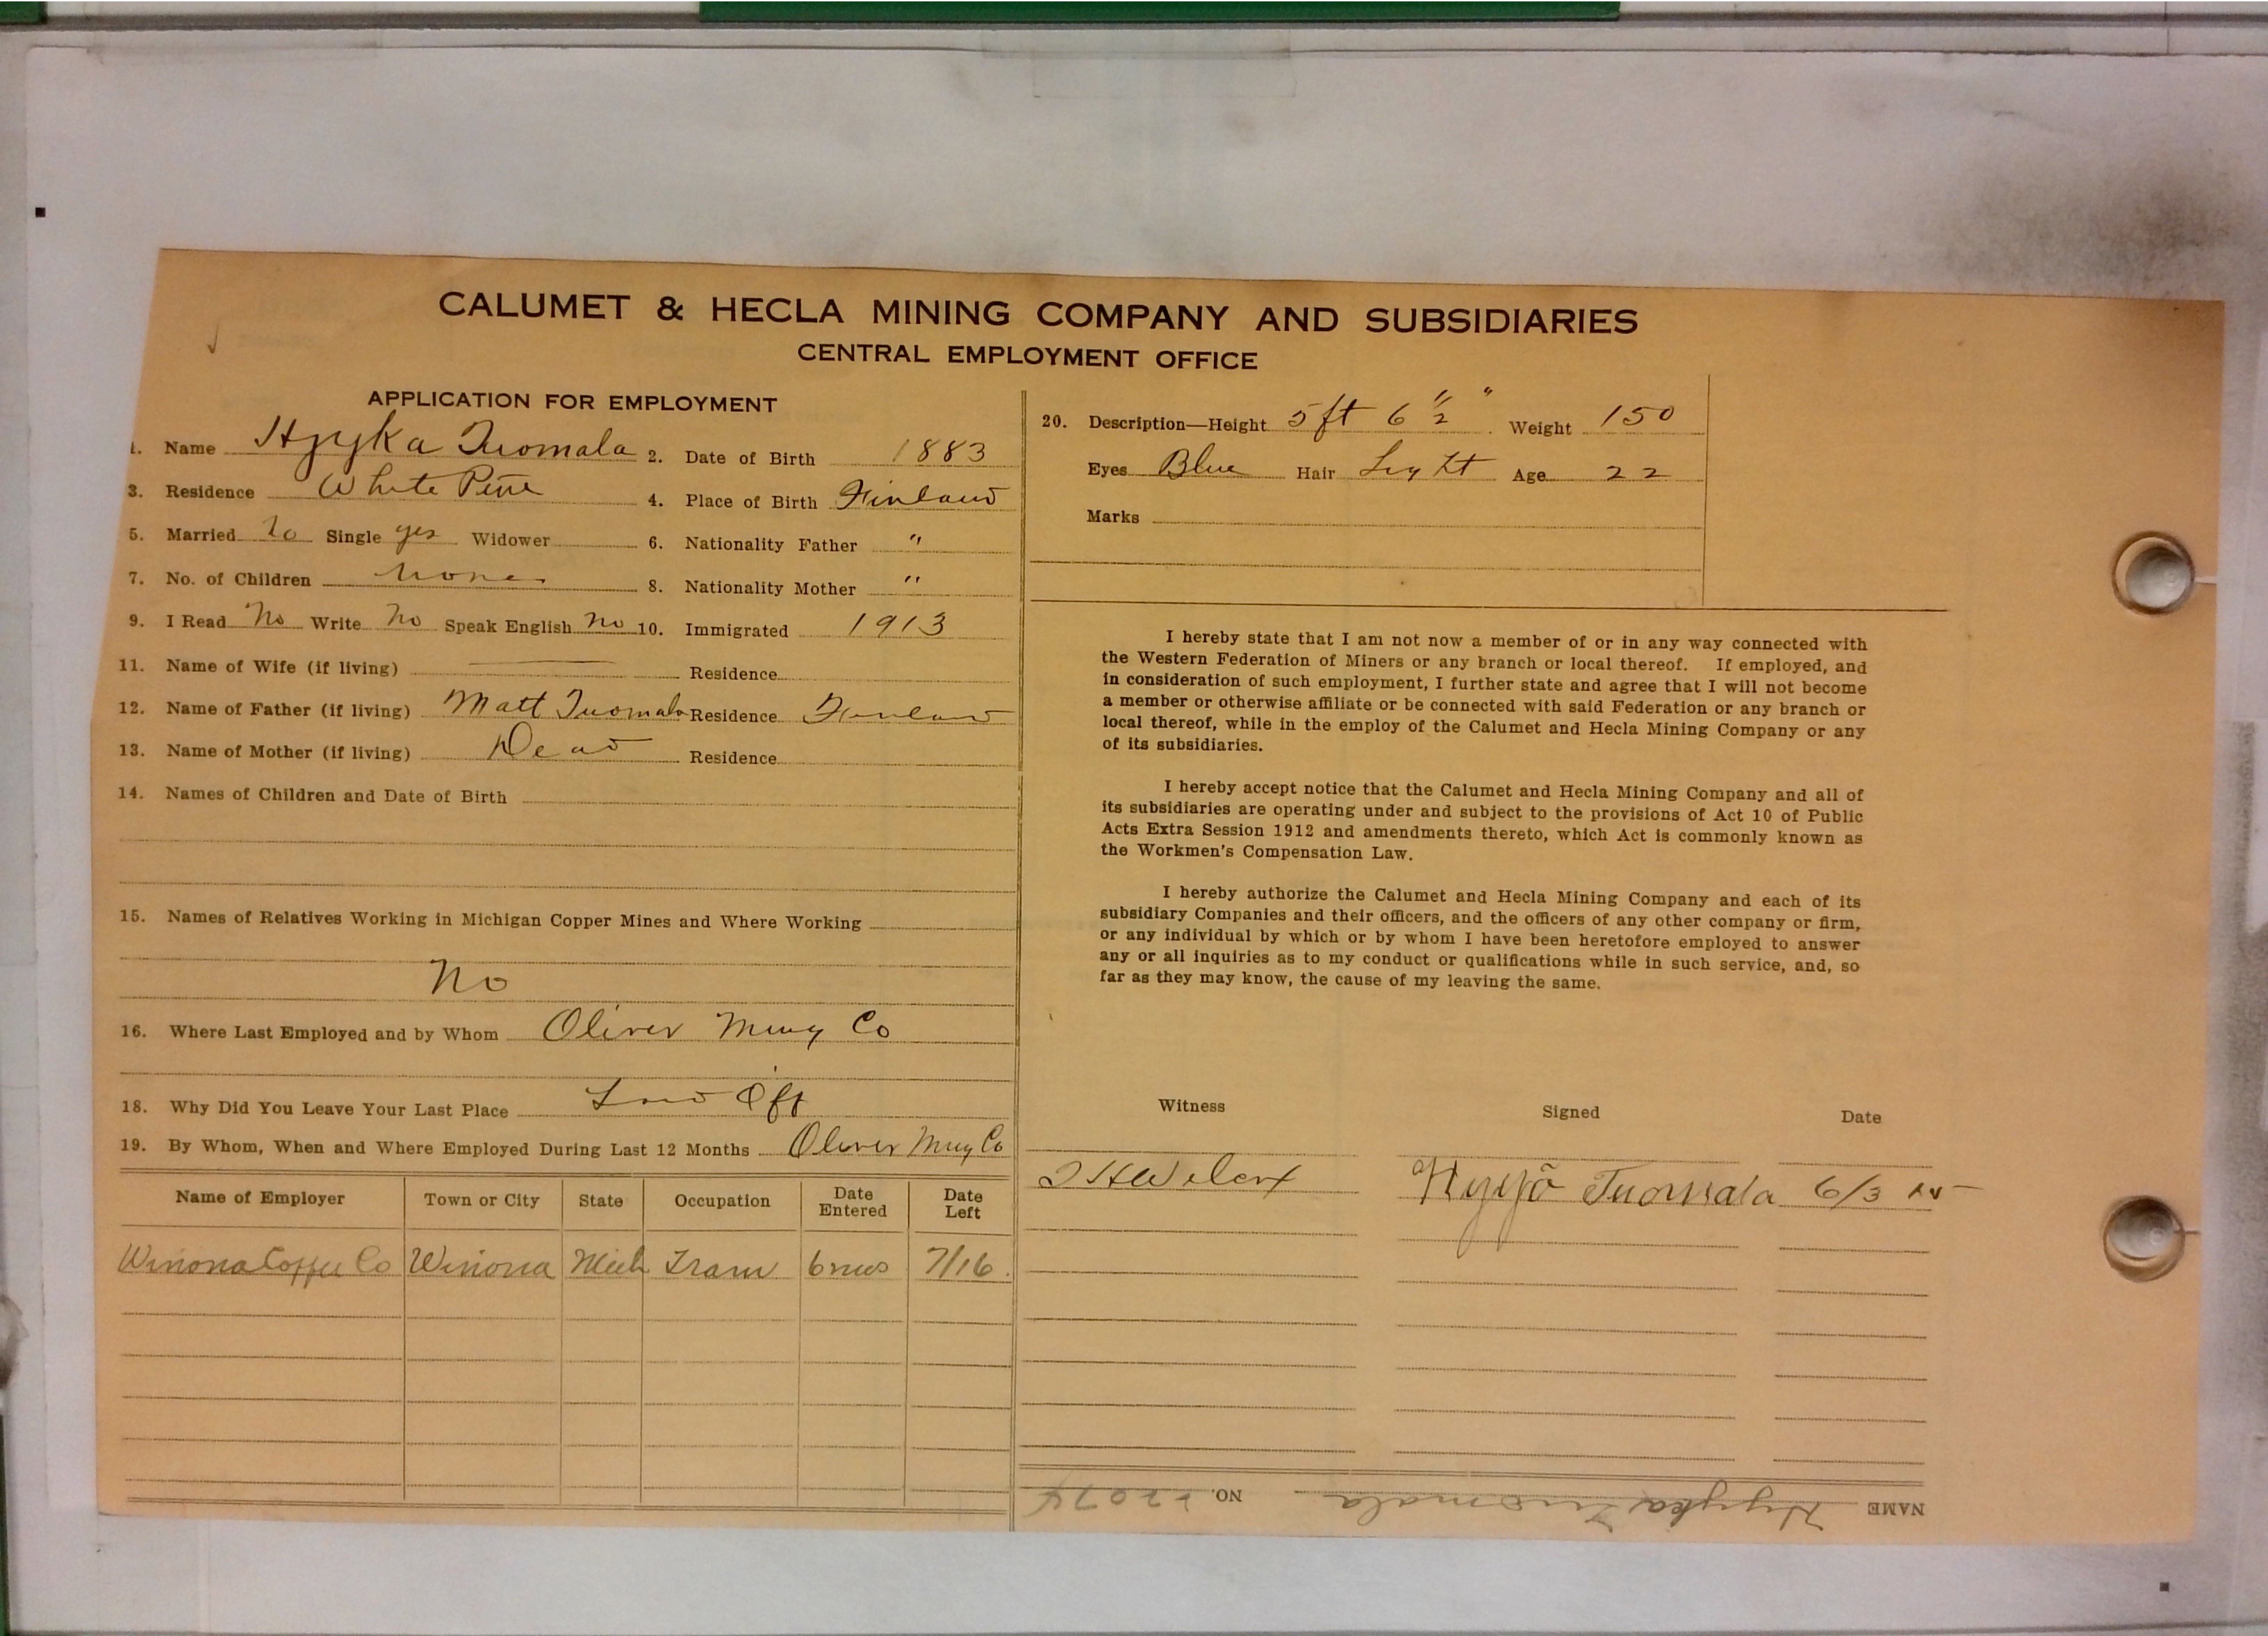 CALUMET & HECLA MINING COMPANY AND SUBSIDIARIES
CENTRAL EMPLOYMENT OFFICE
APPLICATION FOR EMPLOYMENT
1. Name Hyyka Tuomala 2. Date of Birth 1883
3. Residence White Pine 4. Place of Birth Finland
5. Married No Single yes Widower 6. Nationality Father "
7. No. of Children None 8. Nationality Mother "
9. I Read No Write No Speak English No 10. Immigrated 1913
11. Name of Wife (if living) Residence
12. Name of Father (if living) Matt Tuomala Residence Finland
13. Name of Mother (if living) Dead Residence
14. Names of Children and Date of Birth
15. Names of Relatives Working in Michigan Copper Mines and Where Working
No
16. Where Last Employed and by Whom Oliver Mng Co
18. Why Did You Leave Your Last Place Laid Off
19. By Whom, When and Where Employed During Last 12 Months Oliver Mng Co
Name of Employer Town or City State Occupation Date Entered Date Left
Winona Copper Co Winona Mich Tram 6 mos 7/16
20. Description—Height 5 ft 6 1/2 " Weight 150
Eyes Blue Hair Light Age 22
Marks
I hereby state that I am not now a member of or in any way connected with
the Western Federation of Miners or any branch or local thereof. If employed, and
in consideration of such employment, I further state and agree that I will not become
a member or otherwise affiliate or be connected with said Federation or any branch or
local thereof, while in the employ of the Calumet and Hecla Mining Company or any
of its subsidiaries.
I hereby accept notice that the Calumet and Hecla Mining Company and all of
its subsidiaries are operating under and subject to the provisions of Act 10 of Public
Acts Extra Session 1912 and amendments thereto, which Act is commonly known as
the Workmen's Compensation Law.
I hereby authorize the Calumet and Hecla Mining Company and each of its
subsidiary Companies and their officers, and the officers of any other company or firm,
or any individual by which or by whom I have been heretofore employed to answer
any or all inquiries as to my conduct or qualifications while in such service, and, so
far as they may know, the cause of my leaving the same.
Witness Signed Date
Tuomala 6/3 15
NAME Hyyka Tuomala NO. 22074